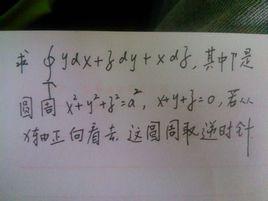 求 ∮ ydx+zdy+xdz, 其中Γ是
Γ
圆周 x²+y²+z²=a², x+y+z=0, 若从
x轴正向看去 这圆周取逆时针